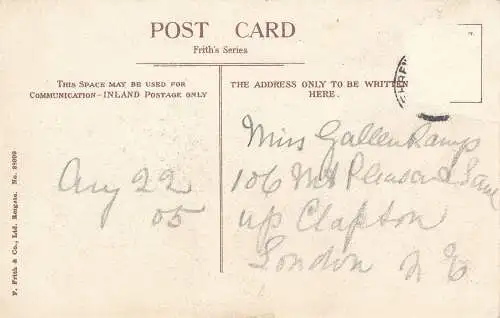 POST CARD
Frith's Series
THIS SPACE MAY BE USED FOR
COMMUNICATION—INLAND POSTAGE ONLY
THE ADDRESS ONLY TO BE WRITTEN
HERE.
Aug 22
05
Miss Gallenkamp
106 Mt Pleasant Lane
up Clapton
London N E
F. Frith & Co., Ltd. Reigate. No.